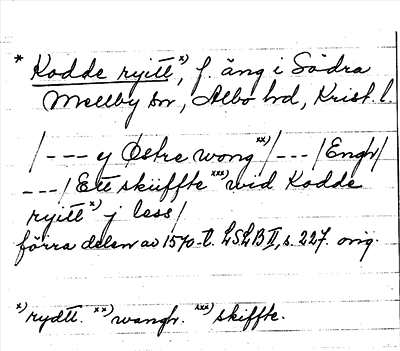 * Kodde ryitt x), f. äng i Södra
Mellby sn, Albo hd, Krist. l.
/--- ej Østre wong xx)/---/Engh/
---/Ett skiffte xxx) wid Kodde
ryitt x) j less/
förra delen av 1570-t. LSLB II, s. 227. orig.
x) rydtt. xx) wangh. xxx) skiffte.